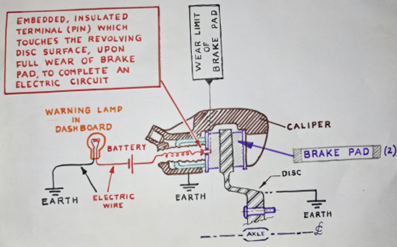 EMBEDDED, INSULATED
TERMINAL (PIN) WHICH
TOUCHES THE REVOLVING
DISC SURFACE, UPON
FULL WEAR OF BRAKE
PAD, TO COMPLETE AN
ELECTRIC CIRCUIT
WEAR LIMIT
OF
BRAKE PAD
WARNING LAMP
IN
DASHBOARD
BATTERY
CALIPER
BRAKE PAD (2)
DISC
EARTH
ELECTRIC
WIRE
EARTH
EARTH
AXLE